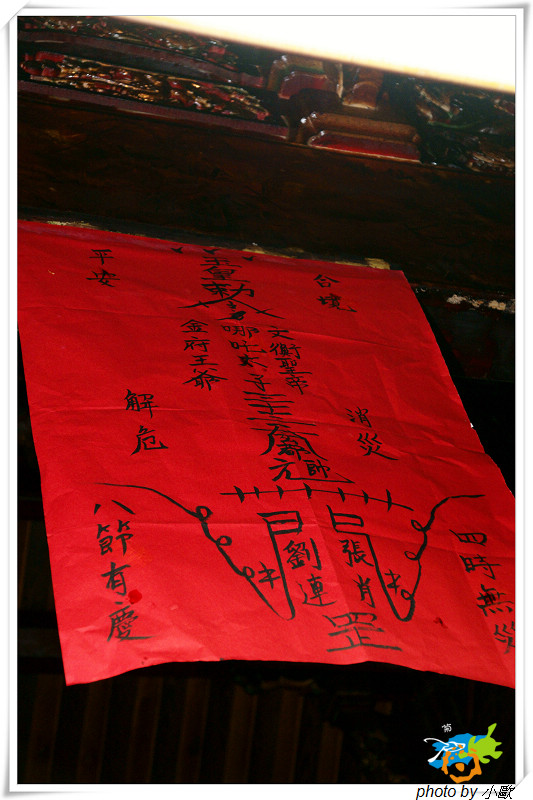 合境
平安
玉皇勅令
文衡聖帝
哪吒太子
金府王爺
消災
解危
元帥
四時無災
八節有慶
張肖
劉連
罡
菊
photo by 小歐